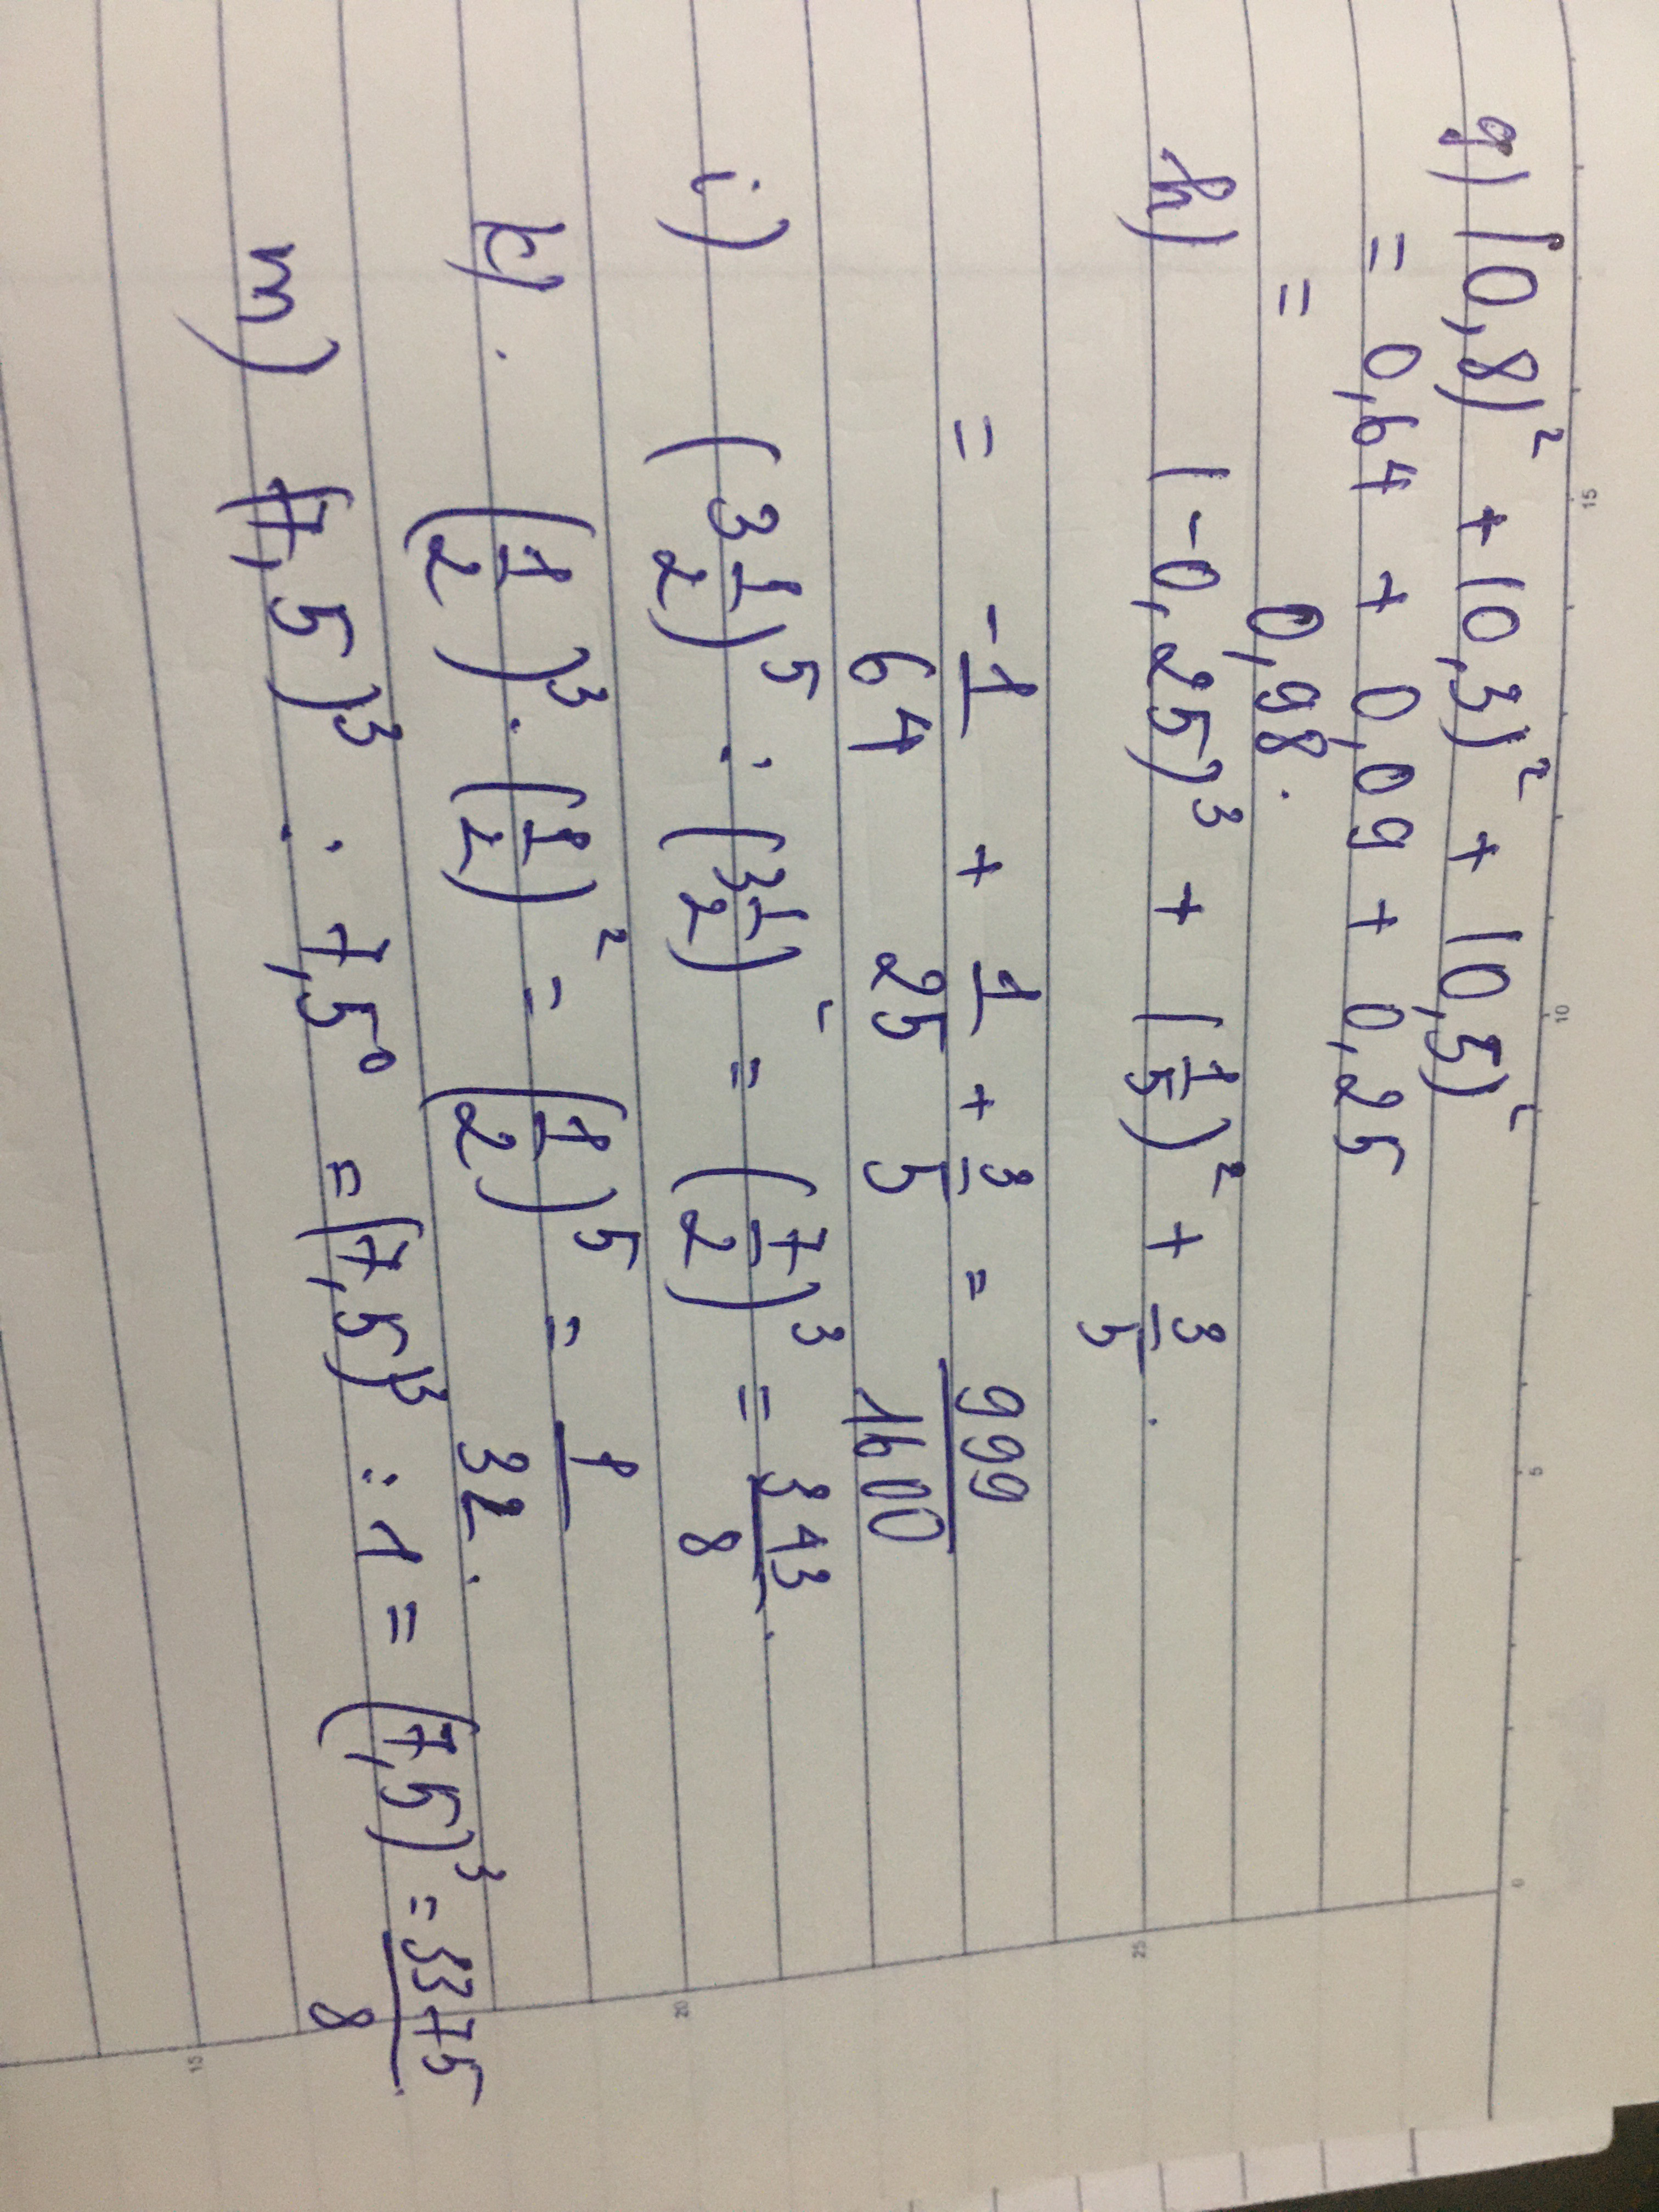 g) (0,8)² + (0,3)² + (0,5)²
= 0,64 + 0,09 + 0,25
= 0,98.
h) (-0,25)³ + (1/5)² + 3/5.
= -1/64 + 1/25 + 3/5 = 999/1600
i) (3 1/2)⁵ : (3 1/2)² = (7/2)³ = 343/8.
k). (1/2)³ . (1/2)² = (1/2)⁵ = 1/32.
m) (7,5)³ : 7,5⁰ = (7,5)³ : 1 = (7,5)³ = 3375/8.
15
10
5
0
25
20
15